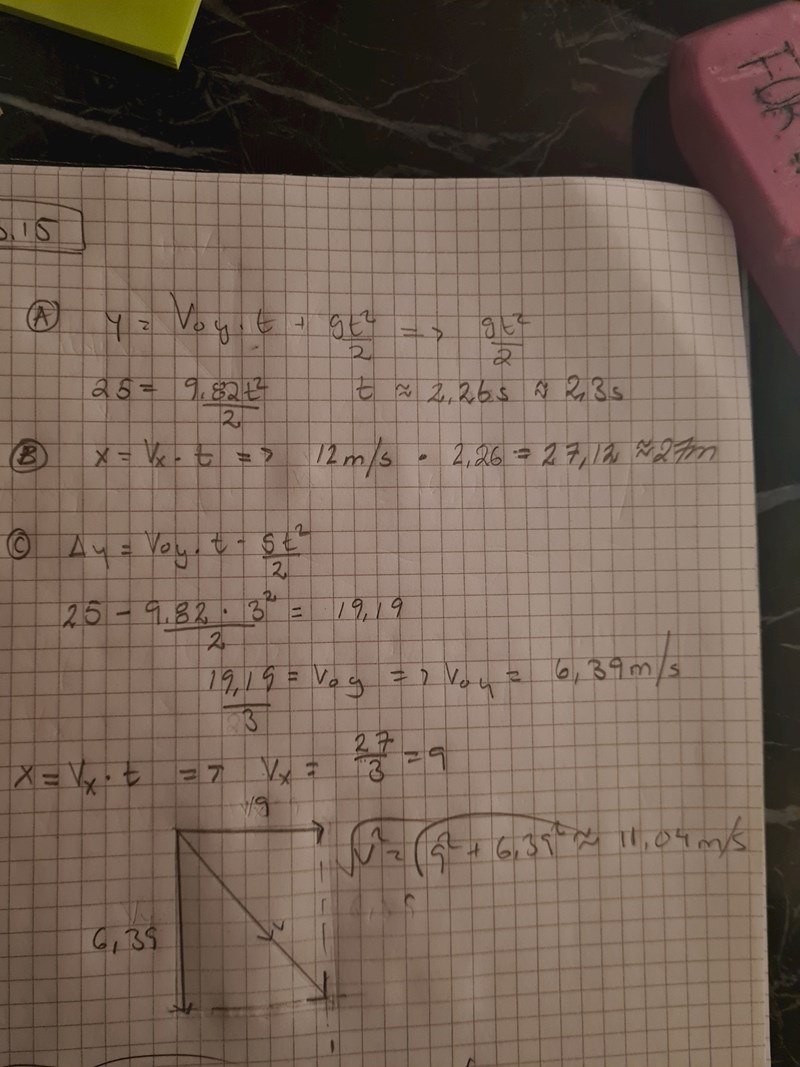 .15
A y = Voy . t + gt²/2 => gt²/2
25 = 9.82t²/2 t ≈ 2,26s ≈ 2,3s
B x = Vx . t => 12 m/s . 2,26 = 27,12 ≈ 27m
C Δy = Voy . t - gt²/2
25 - 9.82 . 3²/2 = 19,19
19,19/3 = Voy => Voy = 6,39 m/s
x = Vx . t => Vx = 27/3 = 9
9
√v² = √9² + 6,39² ≈ 11,04 m/s
6,39
v